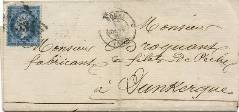 Monsieur
Monsieur Fraquant
fabricant de filets de Pêche
à Dunkerque